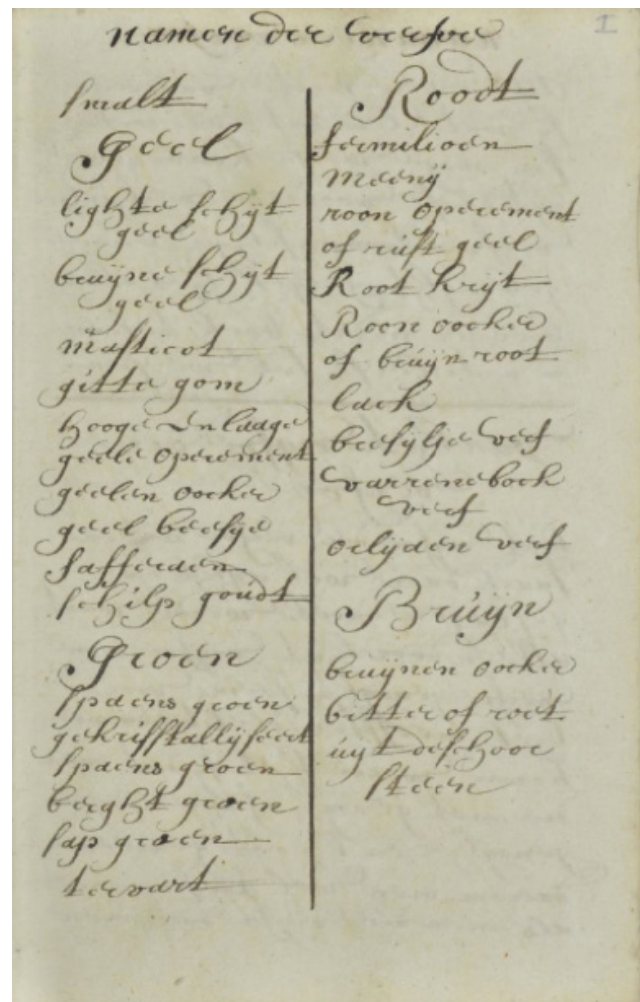 namen der verfve
1
smalt
Geel
lighte schijt
geel
bruijne schijt
geel
masticot
gitte gom
hooge en laage
geele operement
geelen oocker
geel beesye
safferaen
schilp goudt
Groen
spaens groen
gekrisstallyseert
spaens groen
berght groen
sap groen
Roodt
fermilioen
meenij
roon operement
of rust geel
Root krijt
Roon oocker
of bruijn root
lack
bresylje verf
verf
verf
Bruijn
bruijnen oocker
bitter of roet
uijt de schoor
steen